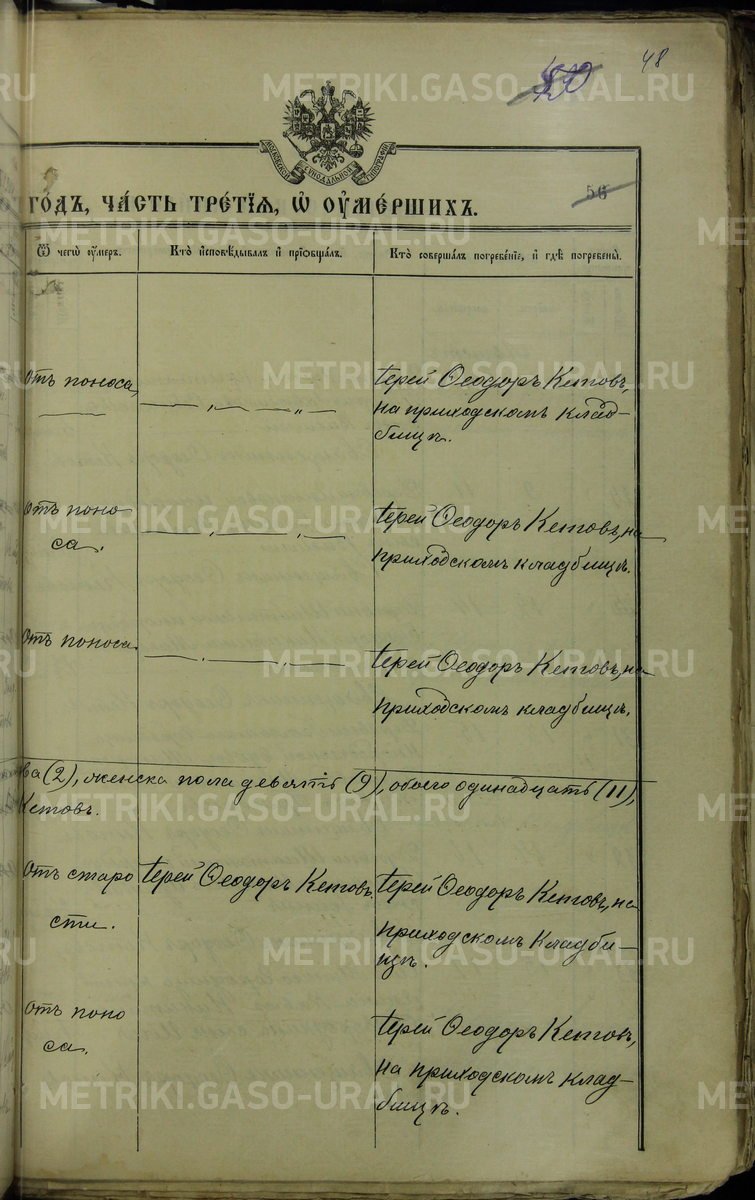 48
50
МОСКОВСКОЙ СѴНОДАЛЬНОЙ ТИПОГРАФІИ
56
ГО́ДЪ, ЧА́СТЬ ТРЕ́ТІѦ, Ѡ҆ ОУ҆МЕ́РШИХЪ.
Ѿ чегѡ̀ ᲂу҆́меръ.
Кто̀ и҆сповѣ́дывалъ и҆ прїѻбща́лъ.
Кто̀ соверша́лъ погребе́нїе, и҆ гдѣ̀ погребены̀.
Отъ поноса,
Іерей Ѳеодоръ Кетовъ,
на приходскомъ клад-
бищѣ.
Отъ поно
са.
Іерей Ѳеодоръ Кетовъ, на
приходскомъ кладбищѣ.
Отъ поноса.
Іерей Ѳеодоръ Кетовъ, на
приходскомъ кладбищѣ.
ва (2), женска пола девять (9), обоего одинадцать (11),
Кетовъ.
Отъ старо
сти.
Іерей Ѳеодоръ Кетовъ.
Іерей Ѳеодоръ Кетовъ, на
приходскомъ кладби-
щѣ.
Отъ поно
са.
Іерей Ѳеодоръ Кетовъ,
на приходскомъ клад-
бищѣ.
METRIKI.GASO-URAL.RU